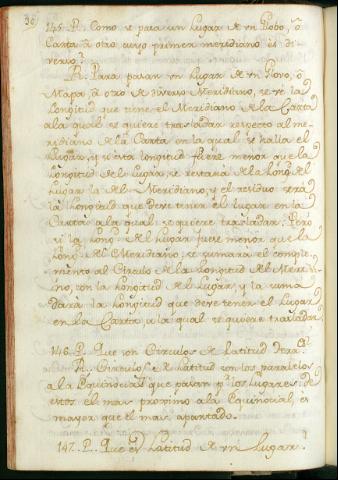 30
145. P. Como se pasa un Lugar de vn Globo, ô
Carta â otro cuyo primer meridiano es di-
verso?
R. Para pasar vn Lugar de vn Glovo, ô
Mapa â otro de diverso Meridiano, se vé la
Longitud que tiene el Meridiano de la Carta
a la qual se quiere trasladar respecto al me-
ridiano de la Carta en la qual se halla el
Lugar, y si esta longitud fuere menor que la
longitud del Lugar, se restara de la Long. del
Lugar la del Meridiano, y el residuo será
la Longitud que debe tener el lugar en la
Carta a la qual se quiere trasladar. Pero
si la Long. del Lugar fuese menor que la
Long. del Meridiano, se sumará el comple-
mento al Circulo de la Longitud del Meri-
no, con la Longitud del Lugar, y la suma
dará la Longitud que deve tener el Lugar
en la Carta, a la qual se quiere trasladar.
146. P. Que son Circulos de Latitud
R. Circulos de Latitud son los paralelos
a la Equinocial que pasan pr. los Lugares, de
estos el mas proximo a la Equinocial, es
mayor que el mas apartado.
147. P. Que es Latitud de vn Lugar?